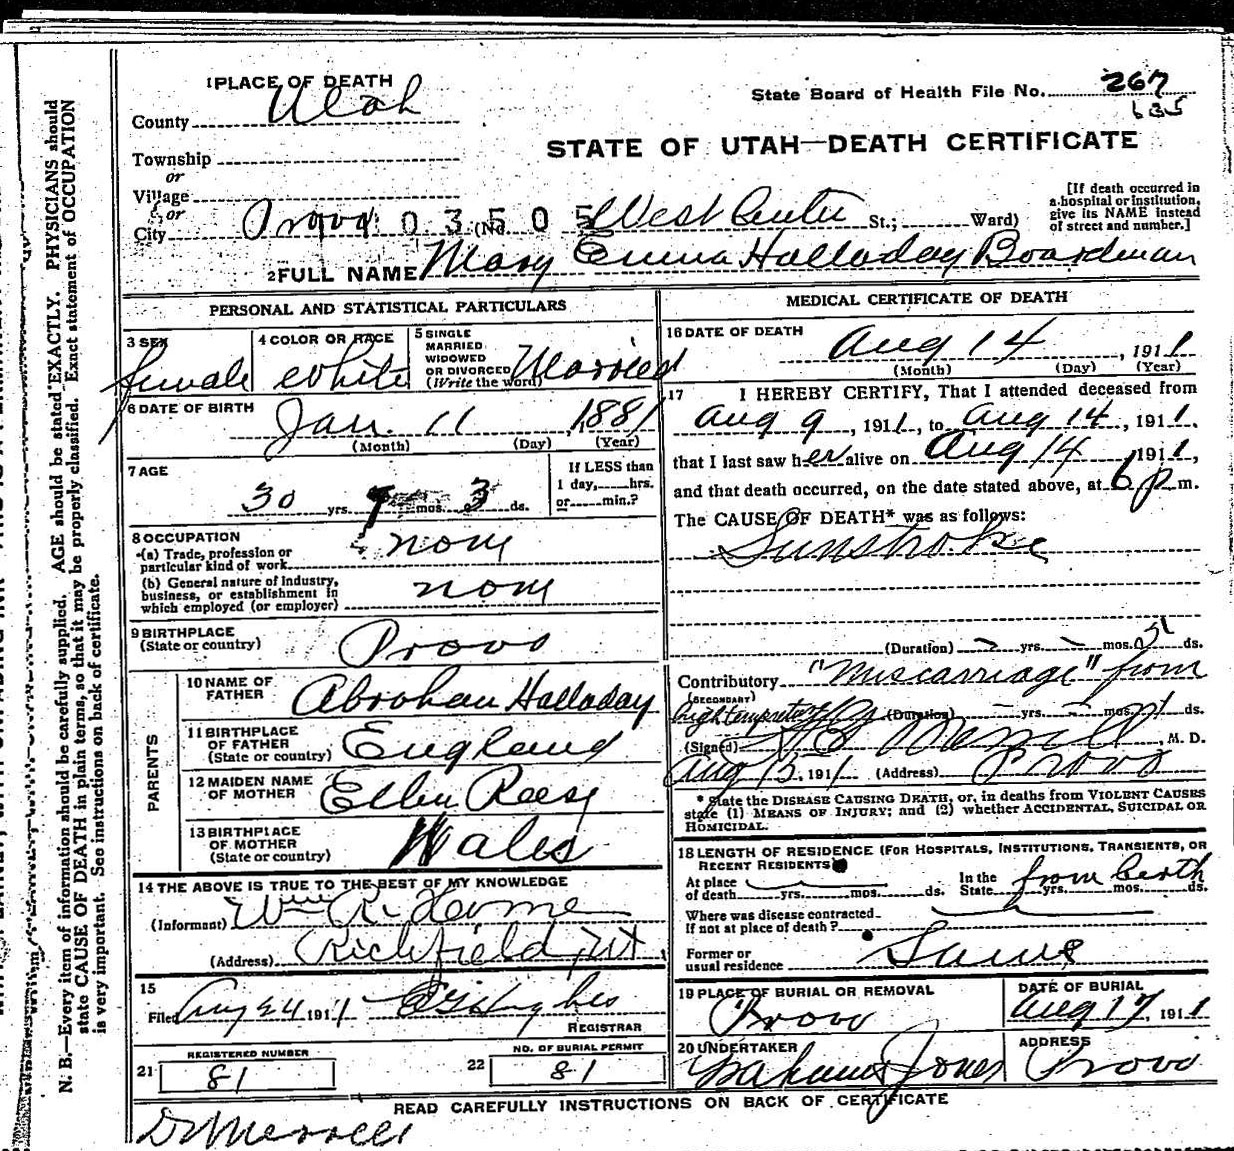 1 PLACE OF DEATH
County Utah
State Board of Health File No. 267
635
Township
or
STATE OF UTAH—DEATH CERTIFICATE
Village
or
City Provo 03505 (No. West Center St.; Ward)
[If death occurred in
a hospital or institution,
give its NAME instead
of street and number.]
2 FULL NAME Mary Emma Halladay Boardman
PERSONAL AND STATISTICAL PARTICULARS
3 SEX female
4 COLOR OR RACE White
5 SINGLE
MARRIED
WIDOWED
OR DIVORCED
(Write the word) Married
6 DATE OF BIRTH Jan. 11, 1881
(Month) (Day) (Year)
7 AGE
30 yrs. mos. 3 ds.
If LESS than
1 day, hrs.
or min.?
8 OCCUPATION
(a) Trade, profession or
particular kind of work none
(b) General nature of industry,
business, or establishment in
which employed (or employer) none
9 BIRTHPLACE
(State or country) Provo
PARENTS
10 NAME OF
FATHER Abraham Halladay
11 BIRTHPLACE
OF FATHER
(State or country) England
12 MAIDEN NAME
OF MOTHER Ellen Reese
13 BIRTHPLACE
OF MOTHER
(State or country) Wales
14 THE ABOVE IS TRUE TO THE BEST OF MY KNOWLEDGE
(Informant) Wm R.
(Address) Richfield, Ut
15
Filed Aug 24 1911 Hughes
REGISTRAR
21 REGISTERED NUMBER
81
22 NO. OF BURIAL PERMIT
81
MEDICAL CERTIFICATE OF DEATH
16 DATE OF DEATH
Aug 14, 1911
(Month) (Day) (Year)
17 I HEREBY CERTIFY, That I attended deceased from
Aug 9, 1911, to Aug 14, 1911,
that I last saw her alive on Aug 14 1911,
and that death occurred, on the date stated above, at 6 p m.
The CAUSE OF DEATH* was as follows:
Sunstroke
(Duration) - yrs. - mos. ds.
Contributory "Miscarriage" from
(SECONDARY)
high (Duration) - yrs. - mos. ds.
(Signed) Merrill, M. D.
Aug 15, 1911 (Address) Provo
* State the DISEASE CAUSING DEATH, or, in deaths from VIOLENT CAUSES
state (1) MEANS OF INJURY; and (2) whether ACCIDENTAL, SUICIDAL OR
HOMICIDAL.
18 LENGTH OF RESIDENCE (FOR HOSPITALS, INSTITUTIONS, TRANSIENTS, OR
RECENT RESIDENTS)
At place
of death yrs. mos. ds.
In the
State from birth yrs. mos. ds.
Where was disease contracted
If not at place of death?
Former or
usual residence Same
19 PLACE OF BURIAL OR REMOVAL
Provo
DATE OF BURIAL
Aug 17, 1911
20 UNDERTAKER
Jones
ADDRESS
Provo
READ CAREFULLY INSTRUCTIONS ON BACK OF CERTIFICATE
Dr Merrill
N. B.—Every item of information should be carefully supplied. AGE should be stated EXACTLY. PHYSICIANS should
state CAUSE OF DEATH in plain terms, so that it may be properly classified. Exact statement of OCCUPATION
is very important. See instructions on back of certificate.